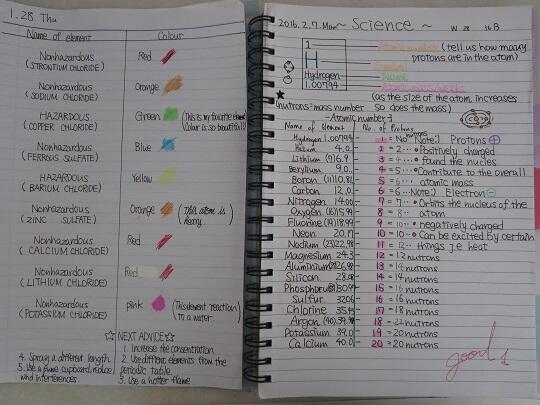 1.28. Thu
Name of element Colour
Nonhazardous Red
(STRONTIUM CHLORIDE)
Nonhazardous Orange
(SODIUM CHLORIDE)
HAZARDOUS Green (This is my favorite element
(COPPER CHLORIDE) Colour is so beautiful!)
Nonhazardous Blue
(FERROUS SULFATE)
HAZARDOUS Yellow
(BARIUM CHLORIDE)
Nonhazardous Orange (This atom is
(ZINC SULFATE) heavy.
Nonhazardous Red
(CALCIUM CHLORIDE)
Nonhazardous Red
(LITHIUM CHLORIDE)
Nonhazardous pink (This element reaction
(POTASSIUM CHLORIDE) to a water.
☆NEXT ADVICE☆
1. increase the concentration
4. Spray a different length 2. Use different elements from the
periodic table
5. Use a fume cupboard, reduce
wind interferences 3. Use a hotter flame
2016. 2. 7. Mon ~ Science ~ W 2B 16B
1 Atomic number (tell us how many
protons are in the atom)
H Symbol
Hydrogen Name
1.00794
(as the size of the atom increases
so does the mass)
(nutrons=mass number - Atomic number)
Name of Element No. of Protons nutrons
Hydrogen 1.00794 - 1 = No Note:) Protons +
Helium 4.0 - 2 = 2 Positively charged
Lithium (7)6.9 - 3 = 4 found the nucles
Berylium 9.0 - 4 = 5 Contribute to the overall
Boron (11)10.81 - 5 = 6 atomic mass
Carbon 12.0 - 6 = 6 Note:) Electron -
Nitrogen 14.00 - 7 = 7 Orbits the nucleus of the
Oxygen (16)15.99 - 8 = 8 atom
Fluorine (19)18.99 - 9 = 10 negatively charged
Neon 20.17 - 10 = 10 Can be excited by certain
Nodium (23)22.98 - 11 = 12 things i.e heat
Magnesium 24.3 - 12 = 12 nutrons
Aluminium 26.98 - 13 = 14 nutrons
Silicon 28.08 - 14 = 14 nutrons
Phosphorus 30.97 - 15 = 16 nutrons
Sulfur 32.06 - 16 = 16 nutrons
Chlorine 35.4 - 17 = 18 nutrons
Argon (40)39.9 - 18 = 22 nutrons
Potassium 39.0 - 19 = 20 nutrons
Calcium 40.0 - 20 = 20 nutrons
good!